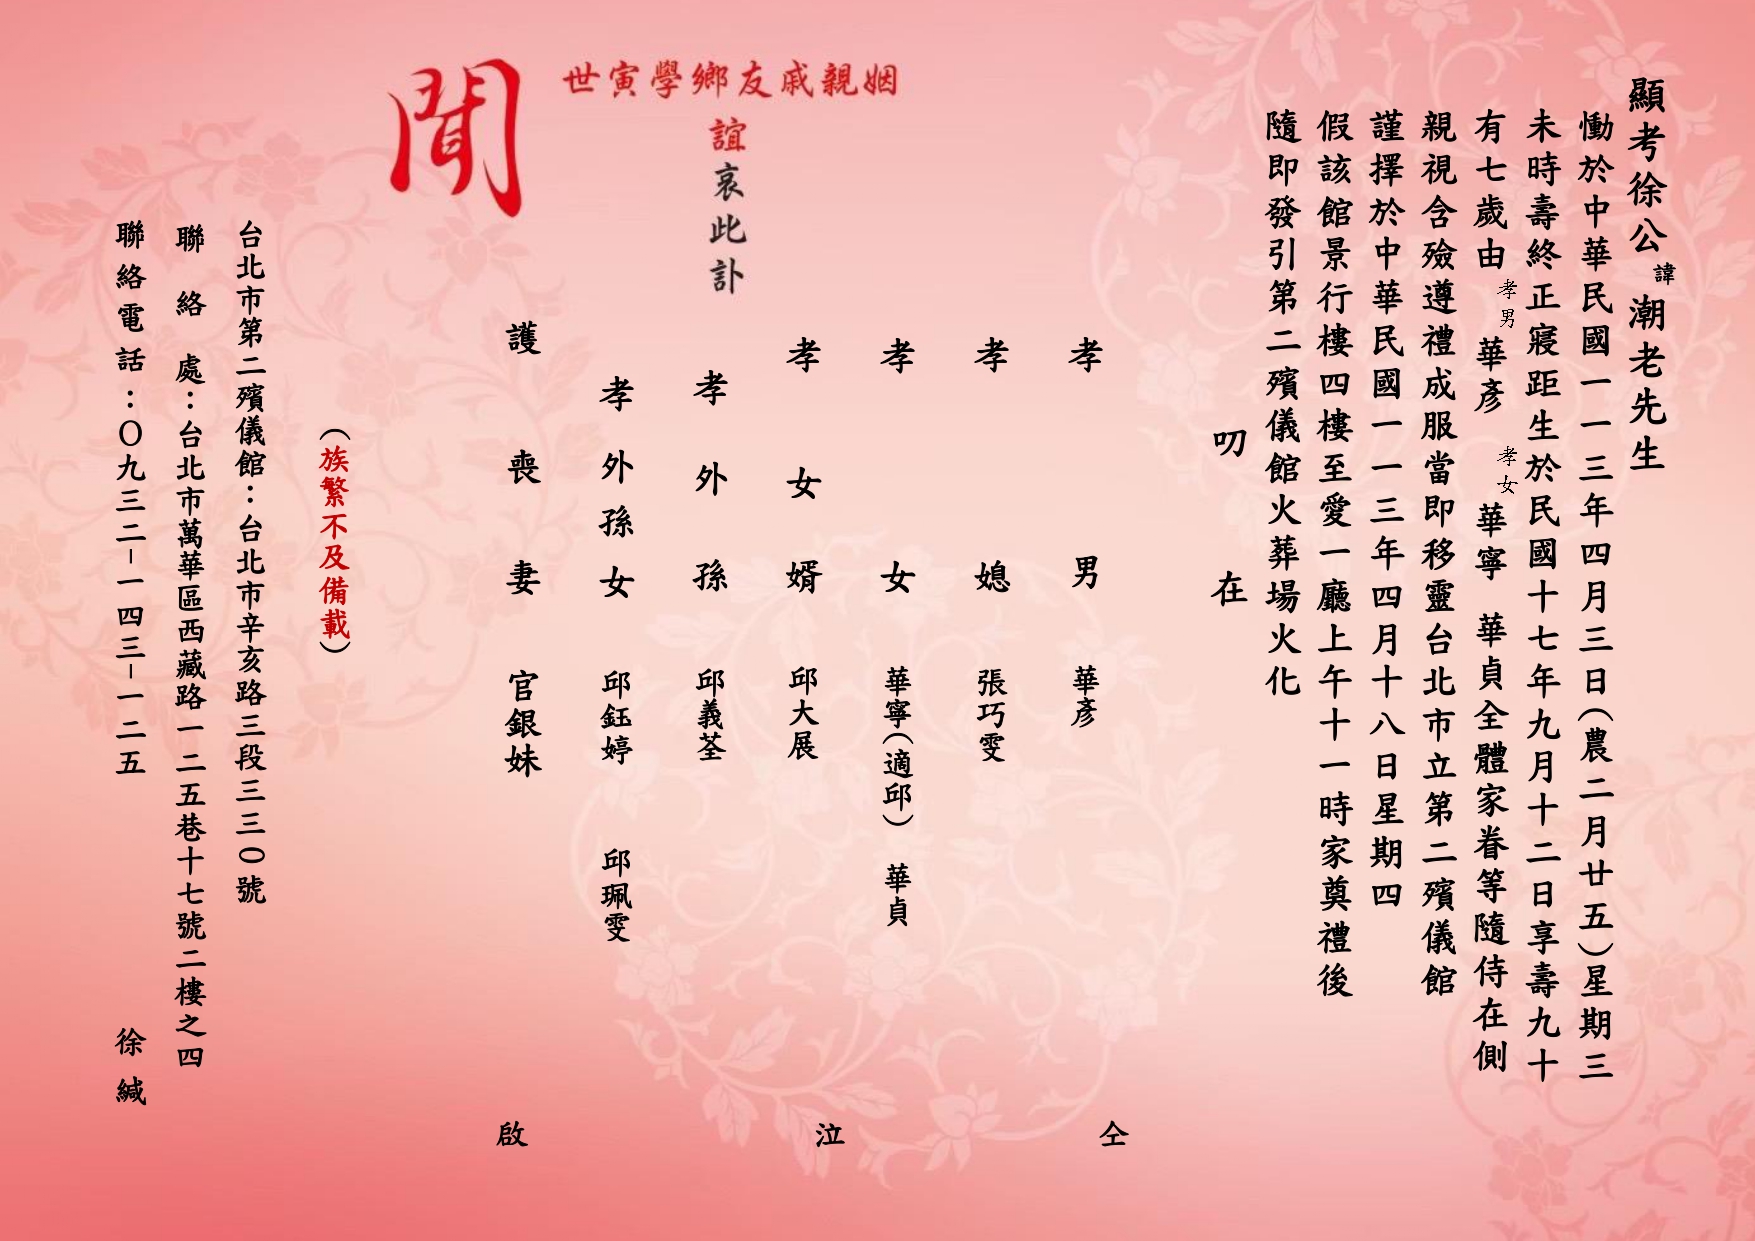 顯考徐公諱潮老先生
慟於中華民國一一三年四月三日(農二月廿五)星期三
未時壽終正寢距生於民國十七年九月十二日享壽九十
有七歲由孝男 華彥 孝女 華寧 華貞全體家眷等隨侍在側
親視含殮遵禮成服當即移靈台北市立第二殯儀館
謹擇於中華民國一一三年四月十八日星期四
假該館景行樓四樓至愛一廳上午十一時家奠禮後
隨即發引第二殯儀館火葬場火化
叨在
姻親戚友鄉學寅世
誼哀此訃
聞
孝男 華彥
孝媳 張巧雯
孝女 華寧(適邱) 華貞
孝女婿 邱大展
孝外孫 邱義荃
孝外孫女 邱鈺婷 邱珮雯
護喪妻 官銀妹
仝 泣 啟
(族繁不及備載)
台北市第二殯儀館:台北市辛亥路三段三三〇號
聯絡處:台北市萬華區西藏路一二五巷十七號二樓之四
聯絡電話:〇九三二-一四三-一二五 徐緘